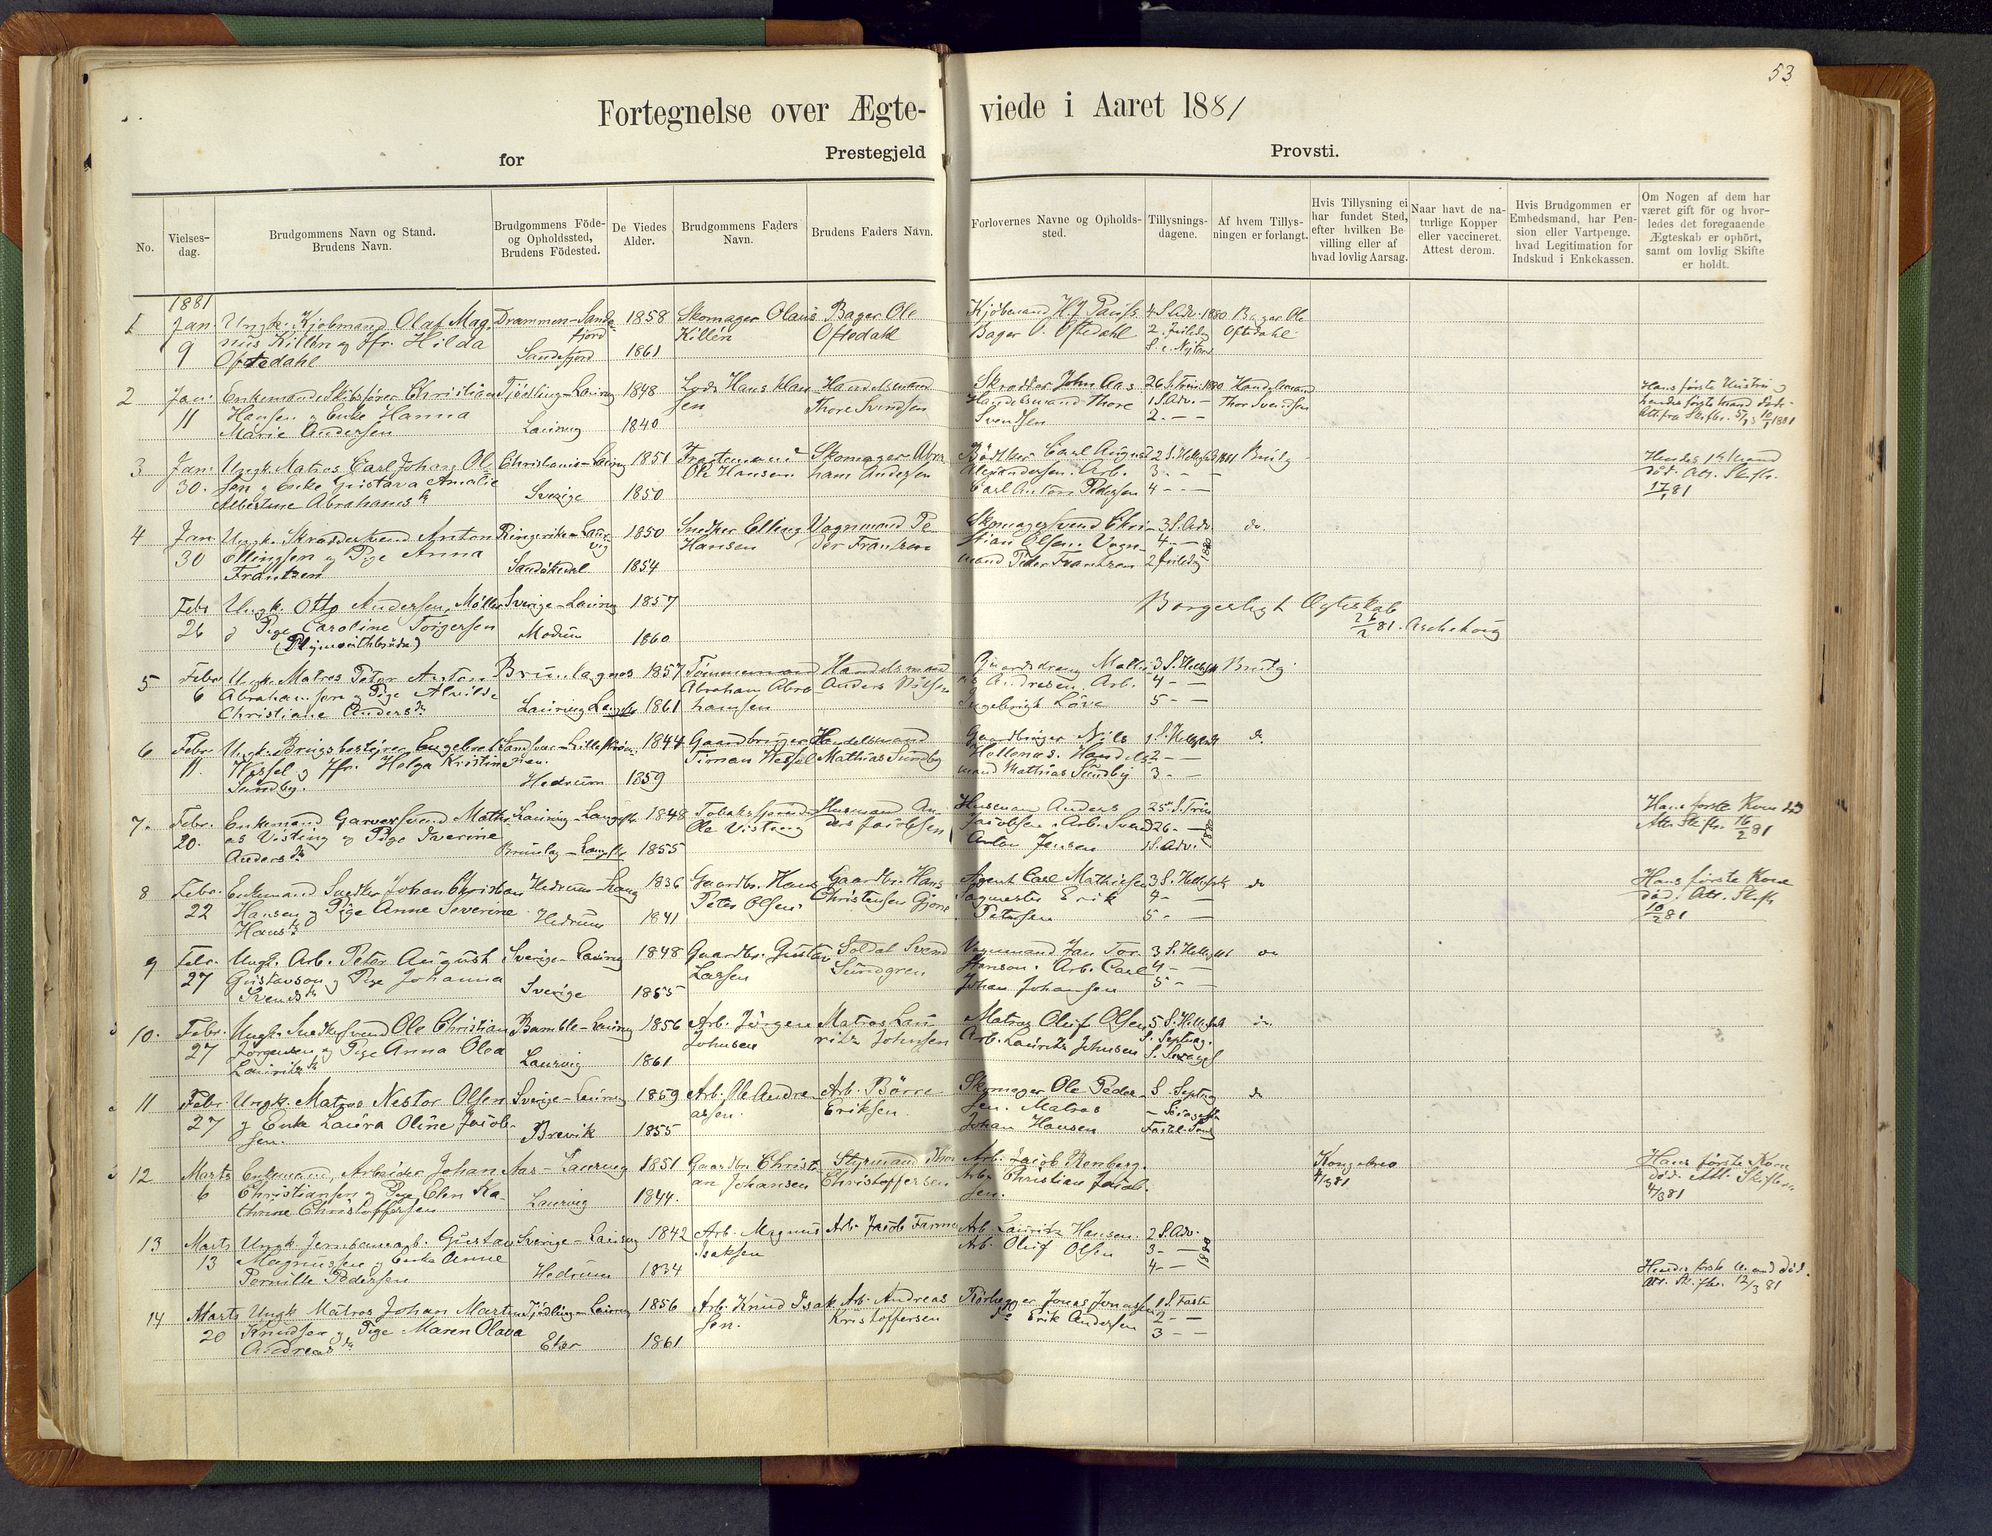 53
Fortegnelse over Ægte- viede i Aaret 1881
for Prestegjeld Provsti.
No.
Vielses-
dag.
Brudgommens Navn og Stand.
Brudens Navn.
Brudgommens Föde-
og Opholdssted,
Brudens Födested.
De Viedes
Alder.
Brudgommens Faders
Navn.
Brudens Faders Navn.
Forlovernes Navne og Opholds-
sted.
Tillysnings-
dagene.
Af hvem Tillys-
ningen er forlangt.
Hvis Tillysning ei
har fundet Sted,
efter hvilken Be-
villing eller af
hvad lovlig Aarsag.
Naar havt de na-
turlige Kopper
eller vaccineret.
Attest derom.
Hvis Brudgommen er
Embedsmand, har Pen-
sion eller Vartpenge.
hvad Legitimation for
Indskud i Enkekassen.
Om Nogen af dem har
været gift för og hvor-
ledes det foregaaende
Ægteskab er ophört,
samt om lovlig Skifte
er holdt.
1881
1 Jan. Ungk. Kjöbmand Olaf Mag- Drammen-Sande 1858 Skomager Olaus Bager Ole Kjöbmand 4 S. Adv. 1880 Bager Ole
nus Killén og Jfr. Hilda fjord Killén Oftedahl Bager O. Oftedahl 2 Juledag Oftedahl
9 Oftedahl Sandefjord 1861 S. e. Nytaar
2 Jan. Enkemand Skibsförer Christian Tjödling-Laurvig 1848 Lods Hans Klau Handelsmand Skrædder John Aas 26 S. Trin. 1880 Handelsmand Hans förste Hustru og
11 Hansen og Enke Hanna sen Thore Svendsen Handelsmand Thore 1 S. Adv. - Thor Svendsen hendes förste Mand döde
Marie Andersen Laurvig 1840 Svendsen 2 - - Att. fra Skiftr.
3 Jan. Ungk. Matros Carl Johan Ol- Christiania-Laurvig 1851 Ole Hansen Skomager Abra Bödtker Carl August 2 S. 1881 Hendes 1ste Mand
30. sen og Enke Gustava Amalie ham Andersen Alexandersen. Arb. 3 - - död. Att. Skiftr.
Albertine Abrahamsd Sverige 1850 Carl Anton Pedersen 4 - - 17/1 81
4 Jan Ungk. Skræddersvend Anton Ringerike-Laur- 1850 Snedker Elling Vognmand Pe- Skomagersvend Chri- 3 S. Adv. do
30 Ellingsen og Pige Anna vig Hansen der Frantzen stian Olsen. Vogn- 4 - -
Frantzen Sandökedal 1854 mand Peder Frantzen 2 Juledag
Febr Ungk. Otto Andersen, Möller Sverige-Laurvig 1857 Borgerligt Ægteskab
26 og Pige Caroline Torgersen Modum 1860 26/2 81.
(Plymouthbröde)
5 Febr Ungk. Matros Peter Anton Brunlagnæs 1857 Tömmermand Handelsmand Gaardsdreng Mathi 3 S. Helligtr. Brudg.
6 Abrahamsen og Pige Alvilde Abraham Abra Anders Nilsen as Andresen. Arb. 4 - -
Christiane Andersd Laurvig 1861 hamsen Ingebrigt Löve 5 - -
6 Febr. Ungk. Brugsbestyrer Engebret Sandsvær-Lilleström 1844 Gaardbruger Handelsmand Gaardbruger Nils 1 S. Helligtr. do.
11. Hessel og Jfr. Helga Kristine Timan Hessel Mathias Sundby Hellenes. Handels 2 - -
Sundby. Hedrum 1859 mand Mathias Sundby 3 - -
7. Febr. Enkemand Garversvend Mathi- Laurvig-Langestr 1848 Husmand An- Husman Anders 25de S. Trin. Hans förste Kone död
20. as Visting og Pige Iverine Ole Visting ders Jacobsen Jacobsen. Arb. Svend 26 - - Att. Skiftr. 16/2 81
Andersd Brunlag-Langestr 1855 Anton Jensen 1 S. Adv.
8 Febr. Enkemand Snedker Johan Christian Hedrum-Laurvig 1836 Gaardbr. Hans Gaardbr. Hans Agent Carl Mathiesen 3 S. Helligtr. do Hans förste Kone
22 Hansen og Pige Anne Severine Peter Olsen. Christensen Gjone Sagmester Erik 4 - - död. Att. Skiftr
Hansd Hedrum 1841 Petersen 5 - - 10/2 81
9 Febr. Ungk. Arb. Peter August Sverige-Laurvig 1848 Gaardbr. Gustav Soldat Svend Vognmand Jan Tor 3 S. Helligtr do
27 Gustavson og Pige Johanna Larsen Sundgren Hanson. Arb. Carl 4 - -
Svendsd Sverige 1855 Johan Johansen 5 - -
10. Febr. Ungk. Snedkersvend Ole Christian Bamble-Laurvig 1856 Arb. Jörgen Matros Lau Matros Oluf Olsen 5 S. Helligtr do.
27 Jörgensen og Pige Anna Olea Johnsen ritz Johnsen Arb. Lauritz Johnsen S. Septuag.
Lauritzd Laurvig 1861 S. Sexages
11 Febr Ungk. Matros Nestor Olsen Sverige-Laurvig 1859 Arb. Ole Andre- Arb. Börre Skomager Ole Peder- S Septuag do
27 og Enke Laura Oline Jacob- assen. Eriksen. sen. Matros
sen. Brevik 1855 Johan Hansen Fastel. Sönd
12 Marts Enkemand, Arbeider Johan Aas-Laurvig 1851 Gaardbr Christi- Styrmand Arb. Jacob Renberg. Kongebrev Hans förste Kone
6 Christiansen og Pige Elen Ka- an Johansen Christoffersen Arb. Christian Jacob- 4/3 81 död. Att. Skiftr.
thrine Christoffersen Laurvig 1844. sen. 4/3 81
13 Marts Ungk. Jernbanearb. Gustav Sverige-Laurvig 1842 Arb. Magnus Arb. Jacob Arb. Lauritz Hansen. 2 S. Adv.
13 Magnussen og Enke Anne Isaksen Arb. Oluf Olsen 3 - -
Pernille Pedersen Hedrum 1834 4 - - Hendes förste Mand död.
Att. Skiftr. 12/3 81
14 Marts Ungk Matros Johan Martin Tjödling-Laurvig 1856 Arb. Knud Isak Arb. Andreas Rörlægger Jonas Jonassen 1 S. Faste
20 Knudsen og Pige Maren Olava sen. Kristoffersen do Erik Andersen 2 - -
Andreasd 1861 3 - -